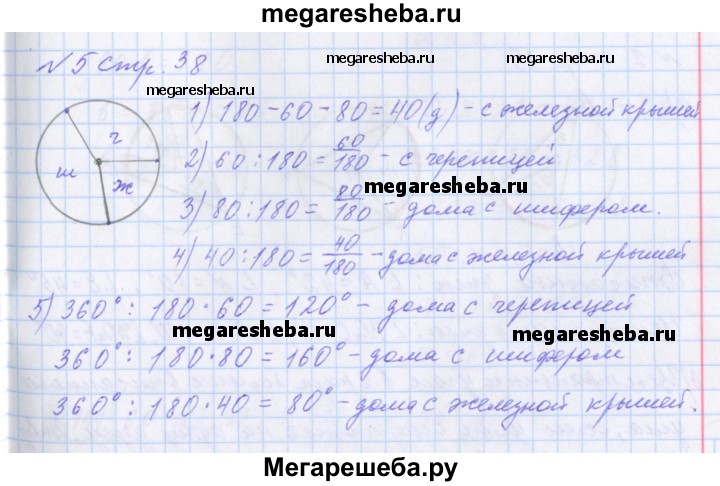 megaresheba.ru
№5 стр. 38
megaresheba.ru
megaresheba.ru
1) 180-60-80=40(д) - с железной крышей
ч
ш
ж
2) 60:180 = 60/180 - с черепицей
megaresheba.ru
3) 80:180 = 80/180 - дома с шифером.
4) 40:180 = 40/180 - дома с железной крышей
5) 360° : 180·60 = 120° - дома с черепицей
megaresheba.ru
megaresheba.ru
360° : 180·80 = 160° - дома с шифером
360° : 180·40 = 80° - дома с железной крышей.
Мегарешеба.ру